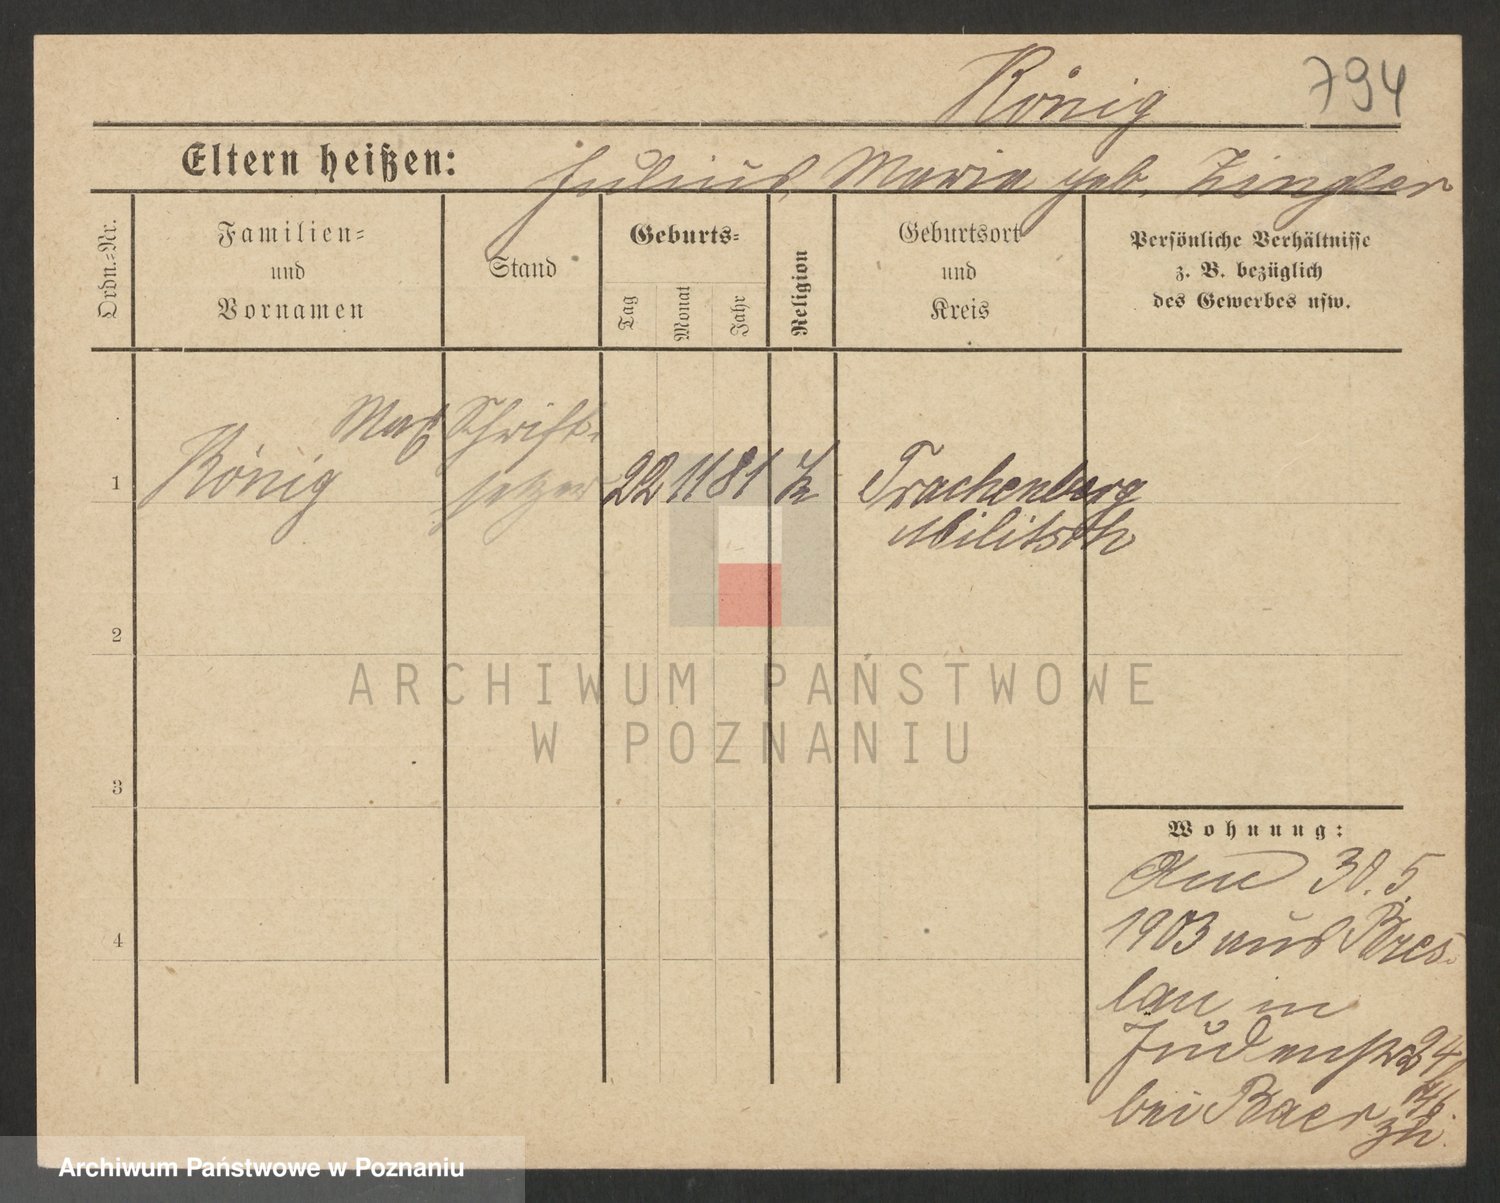 König 794
Eltern heißen: Julius, Maria geb. Zingler
Ordn.-Nr.
Familien-
und
Vornamen
Stand
Geburts-
Tag
Monat
Jahr
Religion
Geburtsort
und
Kreis
Persönliche Verhältnisse
z. B. bezüglich
des Gewerbes usw.
Max Schrift-
1 König setzer 22 11 81 k Trachenberg
Militsch
2
3
4
Wohnung:
Am 30. 5.
1903 aus Bres-
lau in
Judenstr 24
bei Baer
ARCHIWUM PAŃSTWOWE
W POZNANIU
Archiwum Państwowe w Poznaniu